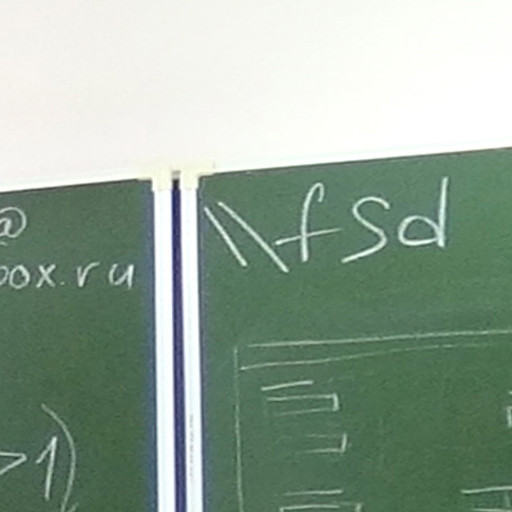 @
box.ru
>1)
\\fsd